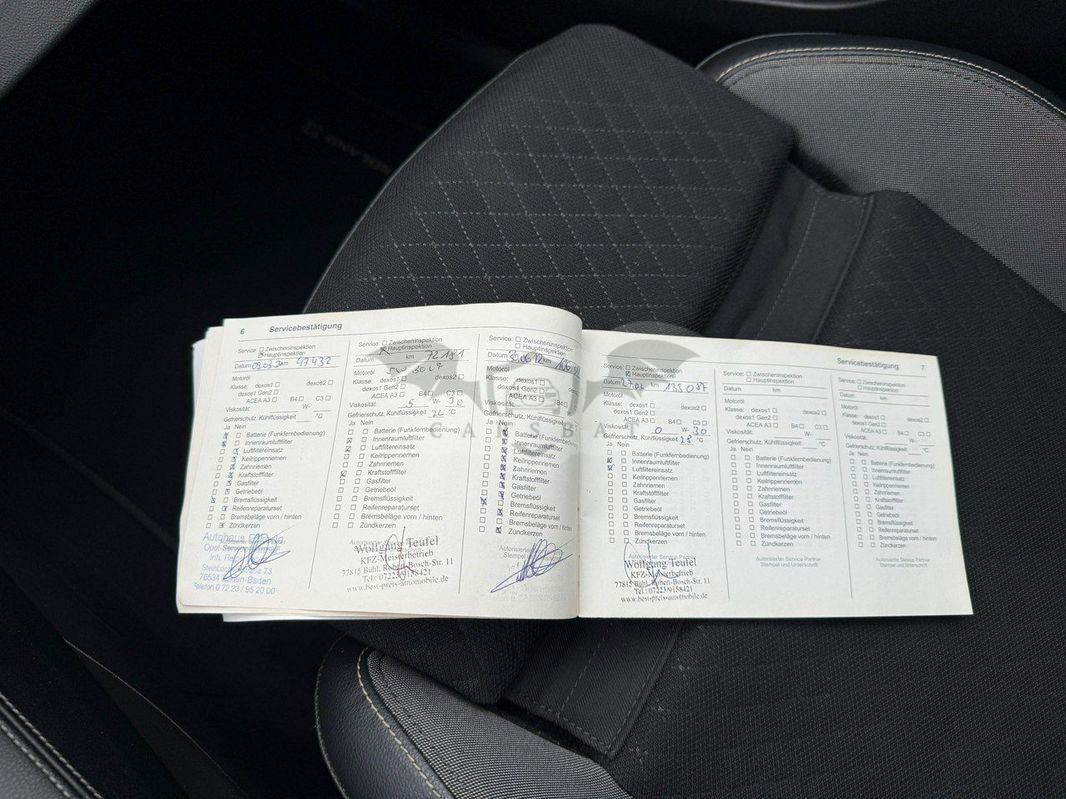 6 Servicebestätigung
Service: Zwischeninspektion
Hauptinspektion
Datum km 47432
Motoröl
Klasse: dexos1 dexos2
dexos1 Gen2
ACEA A3 B4 C3
Viskosität: W-
Gefrierschutz, Kühlflüssigkeit °C
Ja Nein
Batterie (Funkfernbedienung)
Innenraumluftfilter
Luftfiltereinsatz
Keilrippenriemen
Zahnriemen
Kraftstofffilter
Gasfilter
Getriebeöl
Bremsflüssigkeit
Reifenreparaturset
Bremsbeläge vorn / hinten
Zündkerzen
Autohaus
Opel-Service
76534 Baden-Baden
Telefon 0 72 23 / 95 20 00
Service: Zwischeninspektion
Hauptinspektion
Datum km 72181
Motoröl
Klasse: dexos2
dexos1 Gen2
ACEA A3 B4 C3
Viskosität: 5 W- 30
Gefrierschutz, Kühlflüssigkeit °C
Ja Nein
Batterie (Funkfernbedienung)
Innenraumluftfilter
Luftfiltereinsatz
Keilrippenriemen
Zahnriemen
Kraftstofffilter
Gasfilter
Getriebeöl
Bremsflüssigkeit
Reifenreparaturset
Bremsbeläge vorn / hinten
Zündkerzen
Wolfgang Teufel
KFZ-Meisterbetrieb
77815 Bühl, Robert-Bosch-Str. 11
Tel.: 07223/9158421
www.best-preis-automobile.de
Service: Zwischeninspektion
Hauptinspektion
Datum km
Motoröl
Klasse: dexos1 dexos2
dexos1 Gen2
ACEA A3 B4 C3
Viskosität: W-
Gefrierschutz, Kühlflüssigkeit °C
Ja Nein
Batterie (Funkfernbedienung)
Innenraumluftfilter
Luftfiltereinsatz
Keilrippenriemen
Zahnriemen
Kraftstofffilter
Gasfilter
Getriebeöl
Bremsflüssigkeit
Reifenreparaturset
Bremsbeläge vorn / hinten
Zündkerzen
CARSBAT
Servicebestätigung 7
Service: Zwischeninspektion
Hauptinspektion
Datum km
Motoröl
Klasse: dexos1 dexos2
dexos1 Gen2
ACEA A3 B4 C3
Viskosität: 0 W- 30
Gefrierschutz, Kühlflüssigkeit °C
Ja Nein
Batterie (Funkfernbedienung)
Innenraumluftfilter
Luftfiltereinsatz
Keilrippenriemen
Zahnriemen
Kraftstofffilter
Gasfilter
Getriebeöl
Bremsflüssigkeit
Reifenreparaturset
Bremsbeläge vorn / hinten
Zündkerzen
Autorisierter Service Partner
Wolfgang Teufel
KFZ-Meisterbetrieb
77815 Bühl, Robert-Bosch-Str. 11
Tel.: 07223/9158421
www.best-preis-automobile.de
Service: Zwischeninspektion
Hauptinspektion
Datum km
Motoröl
Klasse: dexos1 dexos2
dexos1 Gen2
ACEA A3 B4 C3
Viskosität: W-
Gefrierschutz, Kühlflüssigkeit °C
Ja Nein
Batterie (Funkfernbedienung)
Innenraumluftfilter
Luftfiltereinsatz
Keilrippenriemen
Zahnriemen
Kraftstofffilter
Gasfilter
Getriebeöl
Bremsflüssigkeit
Reifenreparaturset
Bremsbeläge vorn / hinten
Zündkerzen
Autorisierter Service Partner
Stempel und Unterschrift
Service: Zwischeninspektion
Hauptinspektion
Datum km
Motoröl
Klasse: dexos1 dexos2
dexos1 Gen2
ACEA A3 B4 C3
Viskosität: W-
Gefrierschutz, Kühlflüssigkeit °C
Ja Nein
Batterie (Funkfernbedienung)
Innenraumluftfilter
Luftfiltereinsatz
Keilrippenriemen
Zahnriemen
Kraftstofffilter
Gasfilter
Getriebeöl
Bremsflüssigkeit
Reifenreparaturset
Bremsbeläge vorn / hinten
Zündkerzen
Autorisierter Service Partner
Stempel und Unterschrift